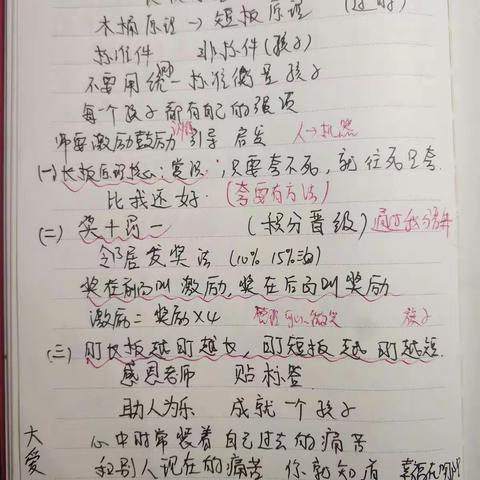 木桶原理→短板原理 (过时)
标准件 非标件(孩子)
不要用统一标准衡量孩子
每一个孩子都有自己的强项
师要激励鼓励 训练 引导 启发 人→机器
(一)长板后的核心:赏识;只要夸不死,就往死里夸.
比我还好.(夸要有方法)
(二) 奖十罚一 (积分晋级)
邻居发奖法 (10% 15%)
奖在前面叫激励,奖在后面叫奖励
激励=奖励×4 微笑 孩子
(三) 盯长板越盯越长,盯短板越盯越短.
感恩老师 贴标签
助人为乐 成就一个孩子
大爱
心中时常装着自己过去的痛苦
和别人现在的痛苦 你就知道 幸福